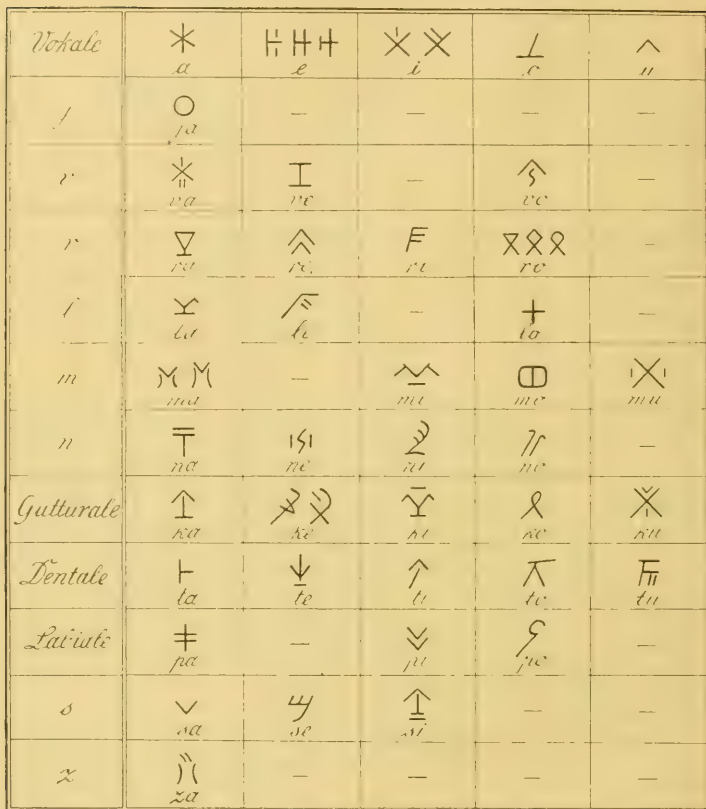 Vokale a e i o u
j ja — — — —
v va ve — vo —
r ra re ri ro —
l la le — lo —
m ma — mi mo mu
n na ne ni no —
Gutturale ka ke ki ko ku
Dentale ta te ti to tu
Labiale pa — pi po —
s sa se si — —
z za — — — —